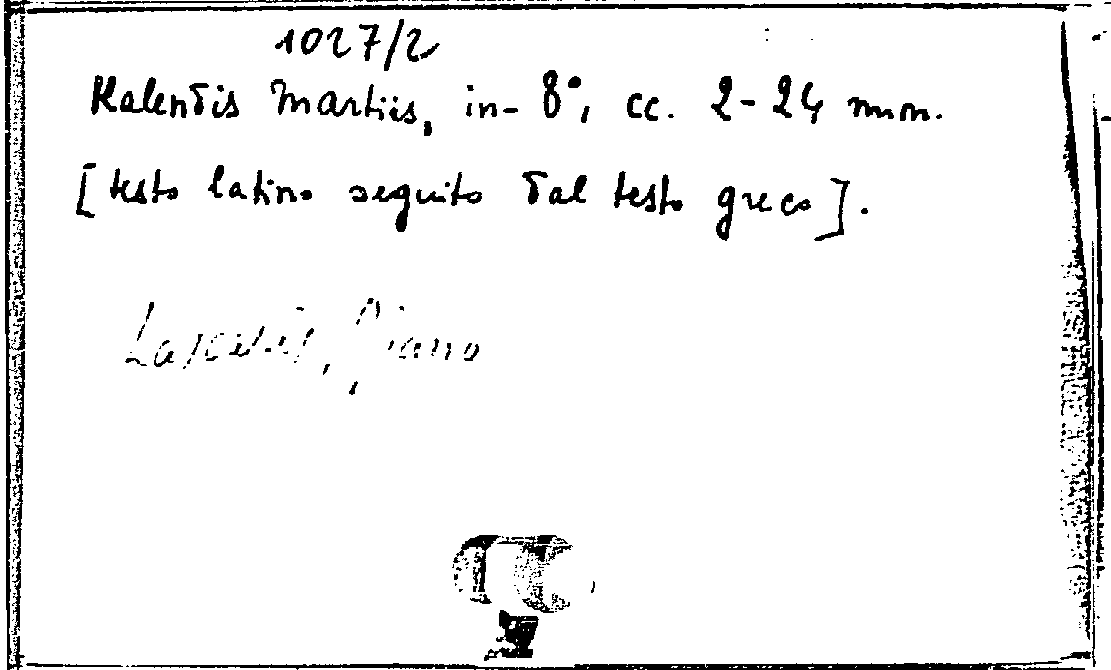 1027/2
Kalendis Martiis, in-8°, cc. 2-24 mm.
[testo latino seguito dal testo greco].
Lascaris, Giano